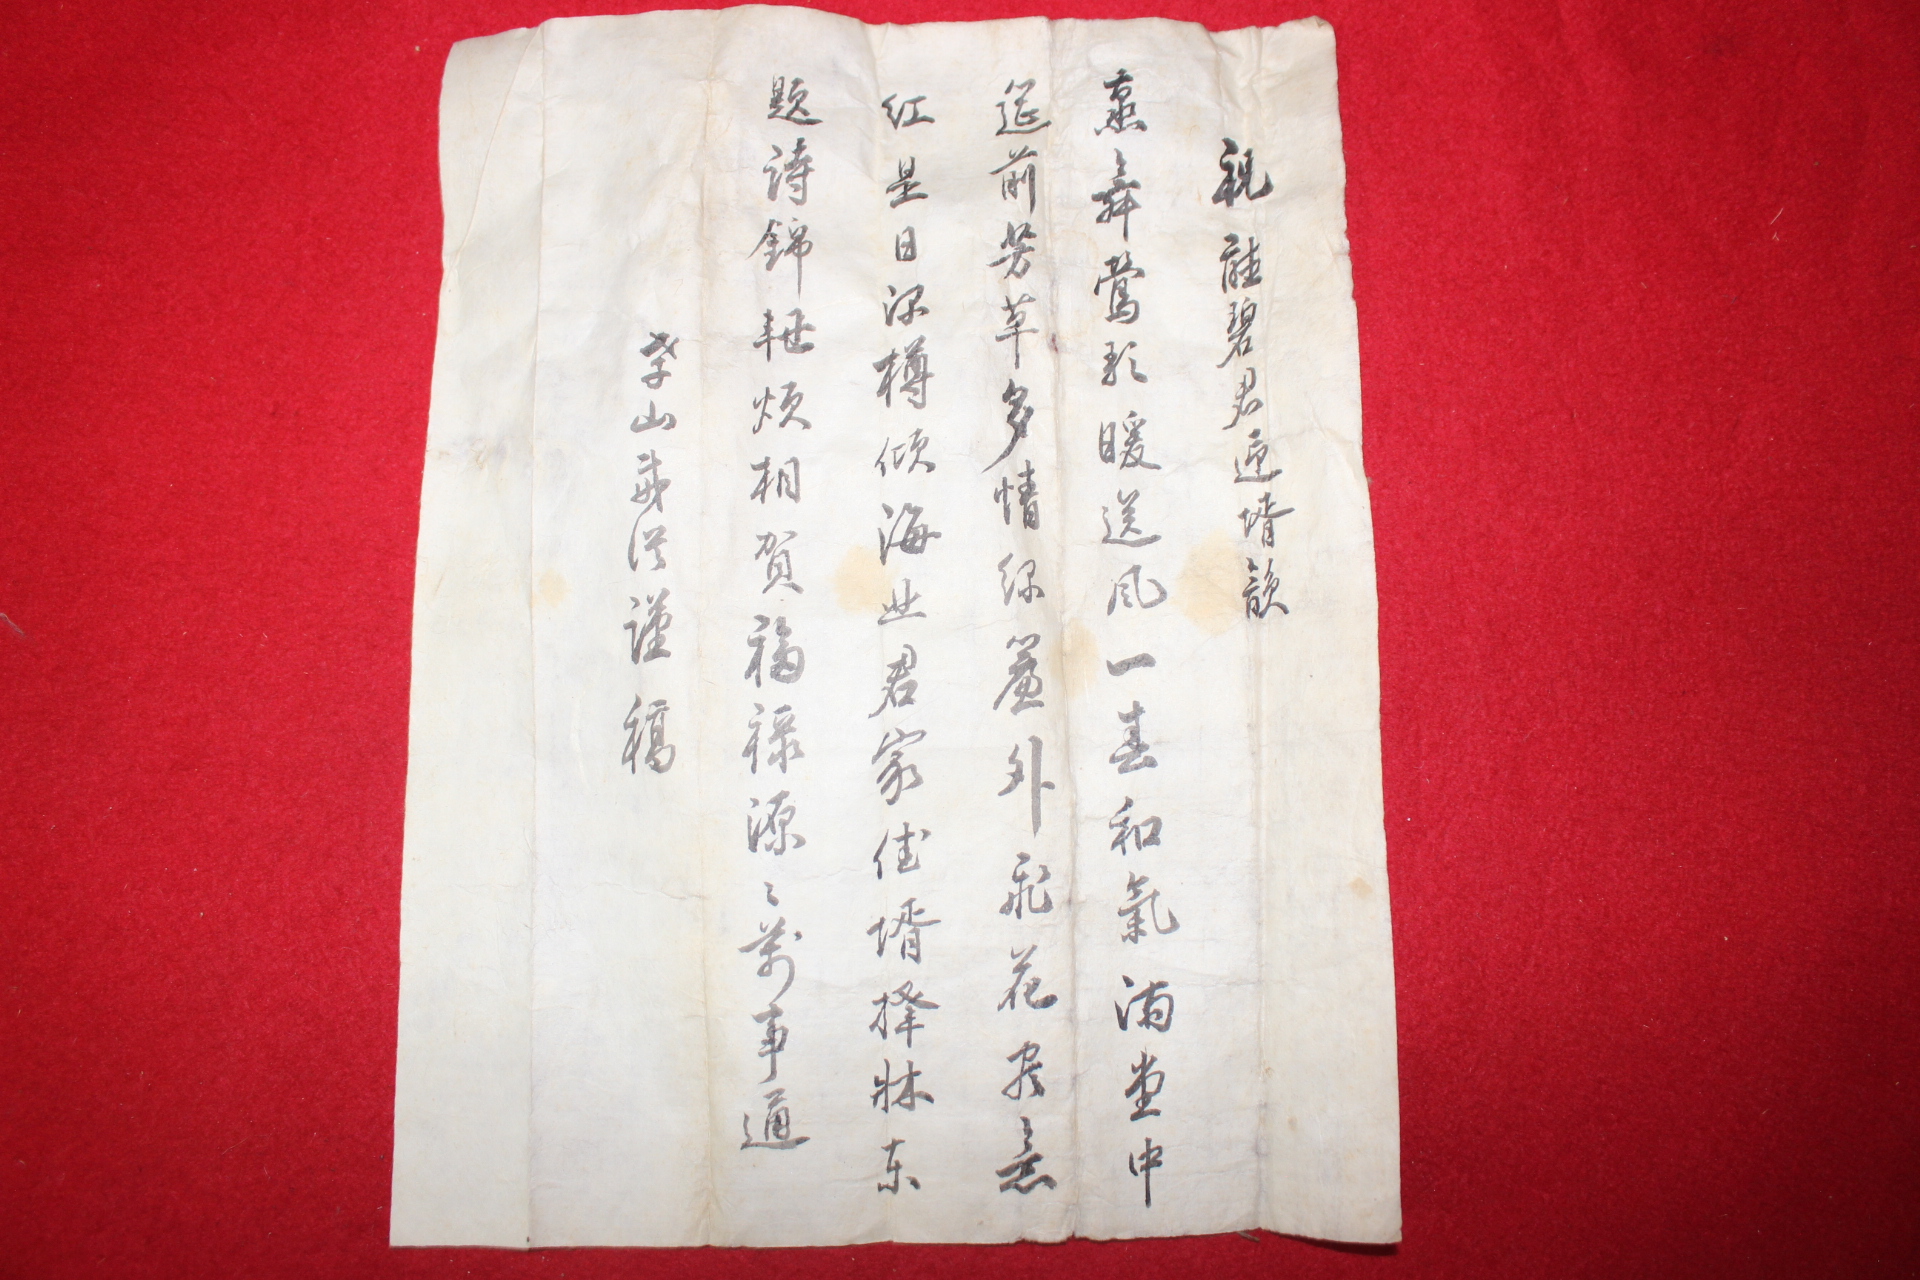 祝碧君迎婿韻
燕舞鶯歌暖送風一春和氣滿堂中
筵前芳草多情綠簾外飛花意
紅是日深樽傾海北君家佳婿擇牀東
題詩錦軸煩相賀福祿源〻萬事通
山謹稿